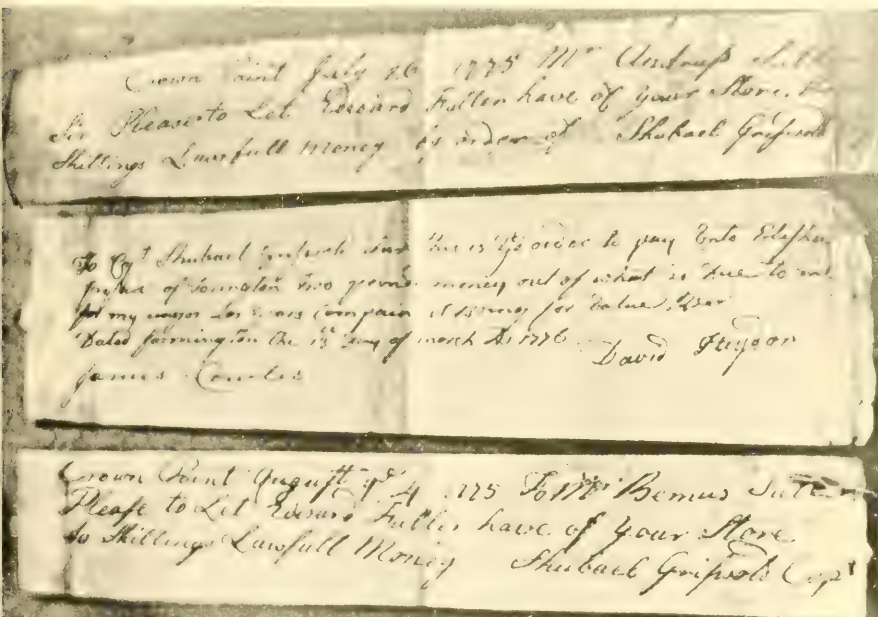 Crown Point July 26 1775 Mr
Sir Please to Let Edward Fuller have of your Store
Shillings Lawfull Money by order of Shubael Griswold
To Capt Shubael Griswold this is ye order to pay Unto
of two pounds money out of what is Due to me
for my Last years it being for Value
Dated farmington the 13 Day of march AD 1776
David
James
Crown Point August ye 4 1775 To Mr Bemus
Please to Let Edward Fuller have of your Store
Shillings Lawfull Money Shubael Griswold Capt